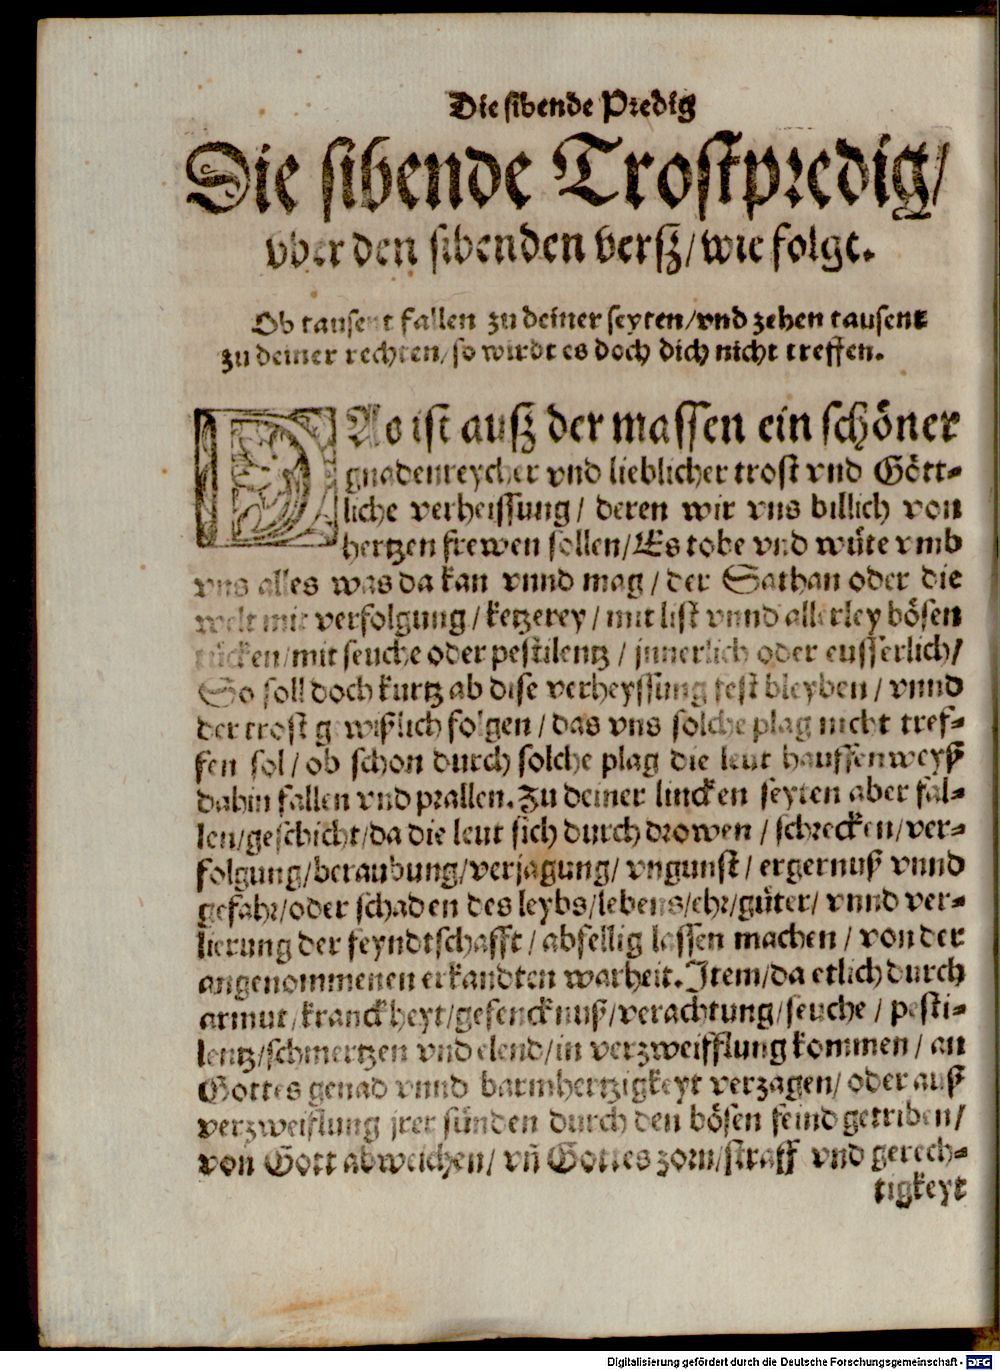 Die sibende Predig
Die sibende Trostpredig/
vber den sibenden versz/ wie folgt.
Ob tausent fallen zu deiner seyten/vnd zehen tausent
zu deiner rechten/ so wirdt es doch dich nicht treffen.
DAs ist ausz der massen ein schöner
gnadenreycher vnd lieblicher trost vnd Gött-
liche verheissung/ deren wir vns billich von
hertzen frewen sollen/ Es tobe vnd wüte vmb
vns alles was da kan vnnd mag/ der Sathan oder die
welt mit verfolgung/ ketzerey/ mit list vnnd allerley bösen
tücken/ mit seuche oder pestilentz/ jnnerlich oder eusserlich/
So soll doch kurtz ab dise verheyssung fest bleyben/ vnnd
der trost gewißlich folgen/ das vns solche plag nicht tref-
fen sol/ ob schon durch solche plag die leut hauffenweyß
dahin fallen vnd prallen. Zu deiner lincken seyten aber fal-
len/ geschicht/ da die leut sich durch drowen/ schrecken/ ver-
folgung/ beraubung/ verjagung/ vngunst/ ergernuß vnnd
gefahr/ oder schaden des leybs/ lebens/ ehr/ güter/ vnnd ver-
lierung der feyndtschafft/ abfellig lassen machen/ von der
angenommenen erkandten warheit. Item/ da etlich durch
armut/ kranckheyt/ gefencknuß/ verachtung/ seuche/ pesti-
lentz/ schmertzen vnd elend/ in verzweifflung kommen/ an
Gottes genad vnnd barmhertzigkeyt verzagen/ oder auß
verzweiflung jrer sünden durch den bösen feind getriben/
von Gott abweichen/ vñ Gottes zorn/ straff vnd gerech-
tigkeyt
Digitalisierung gefördert durch die Deutsche Forschungsgemeinschaft - DFG